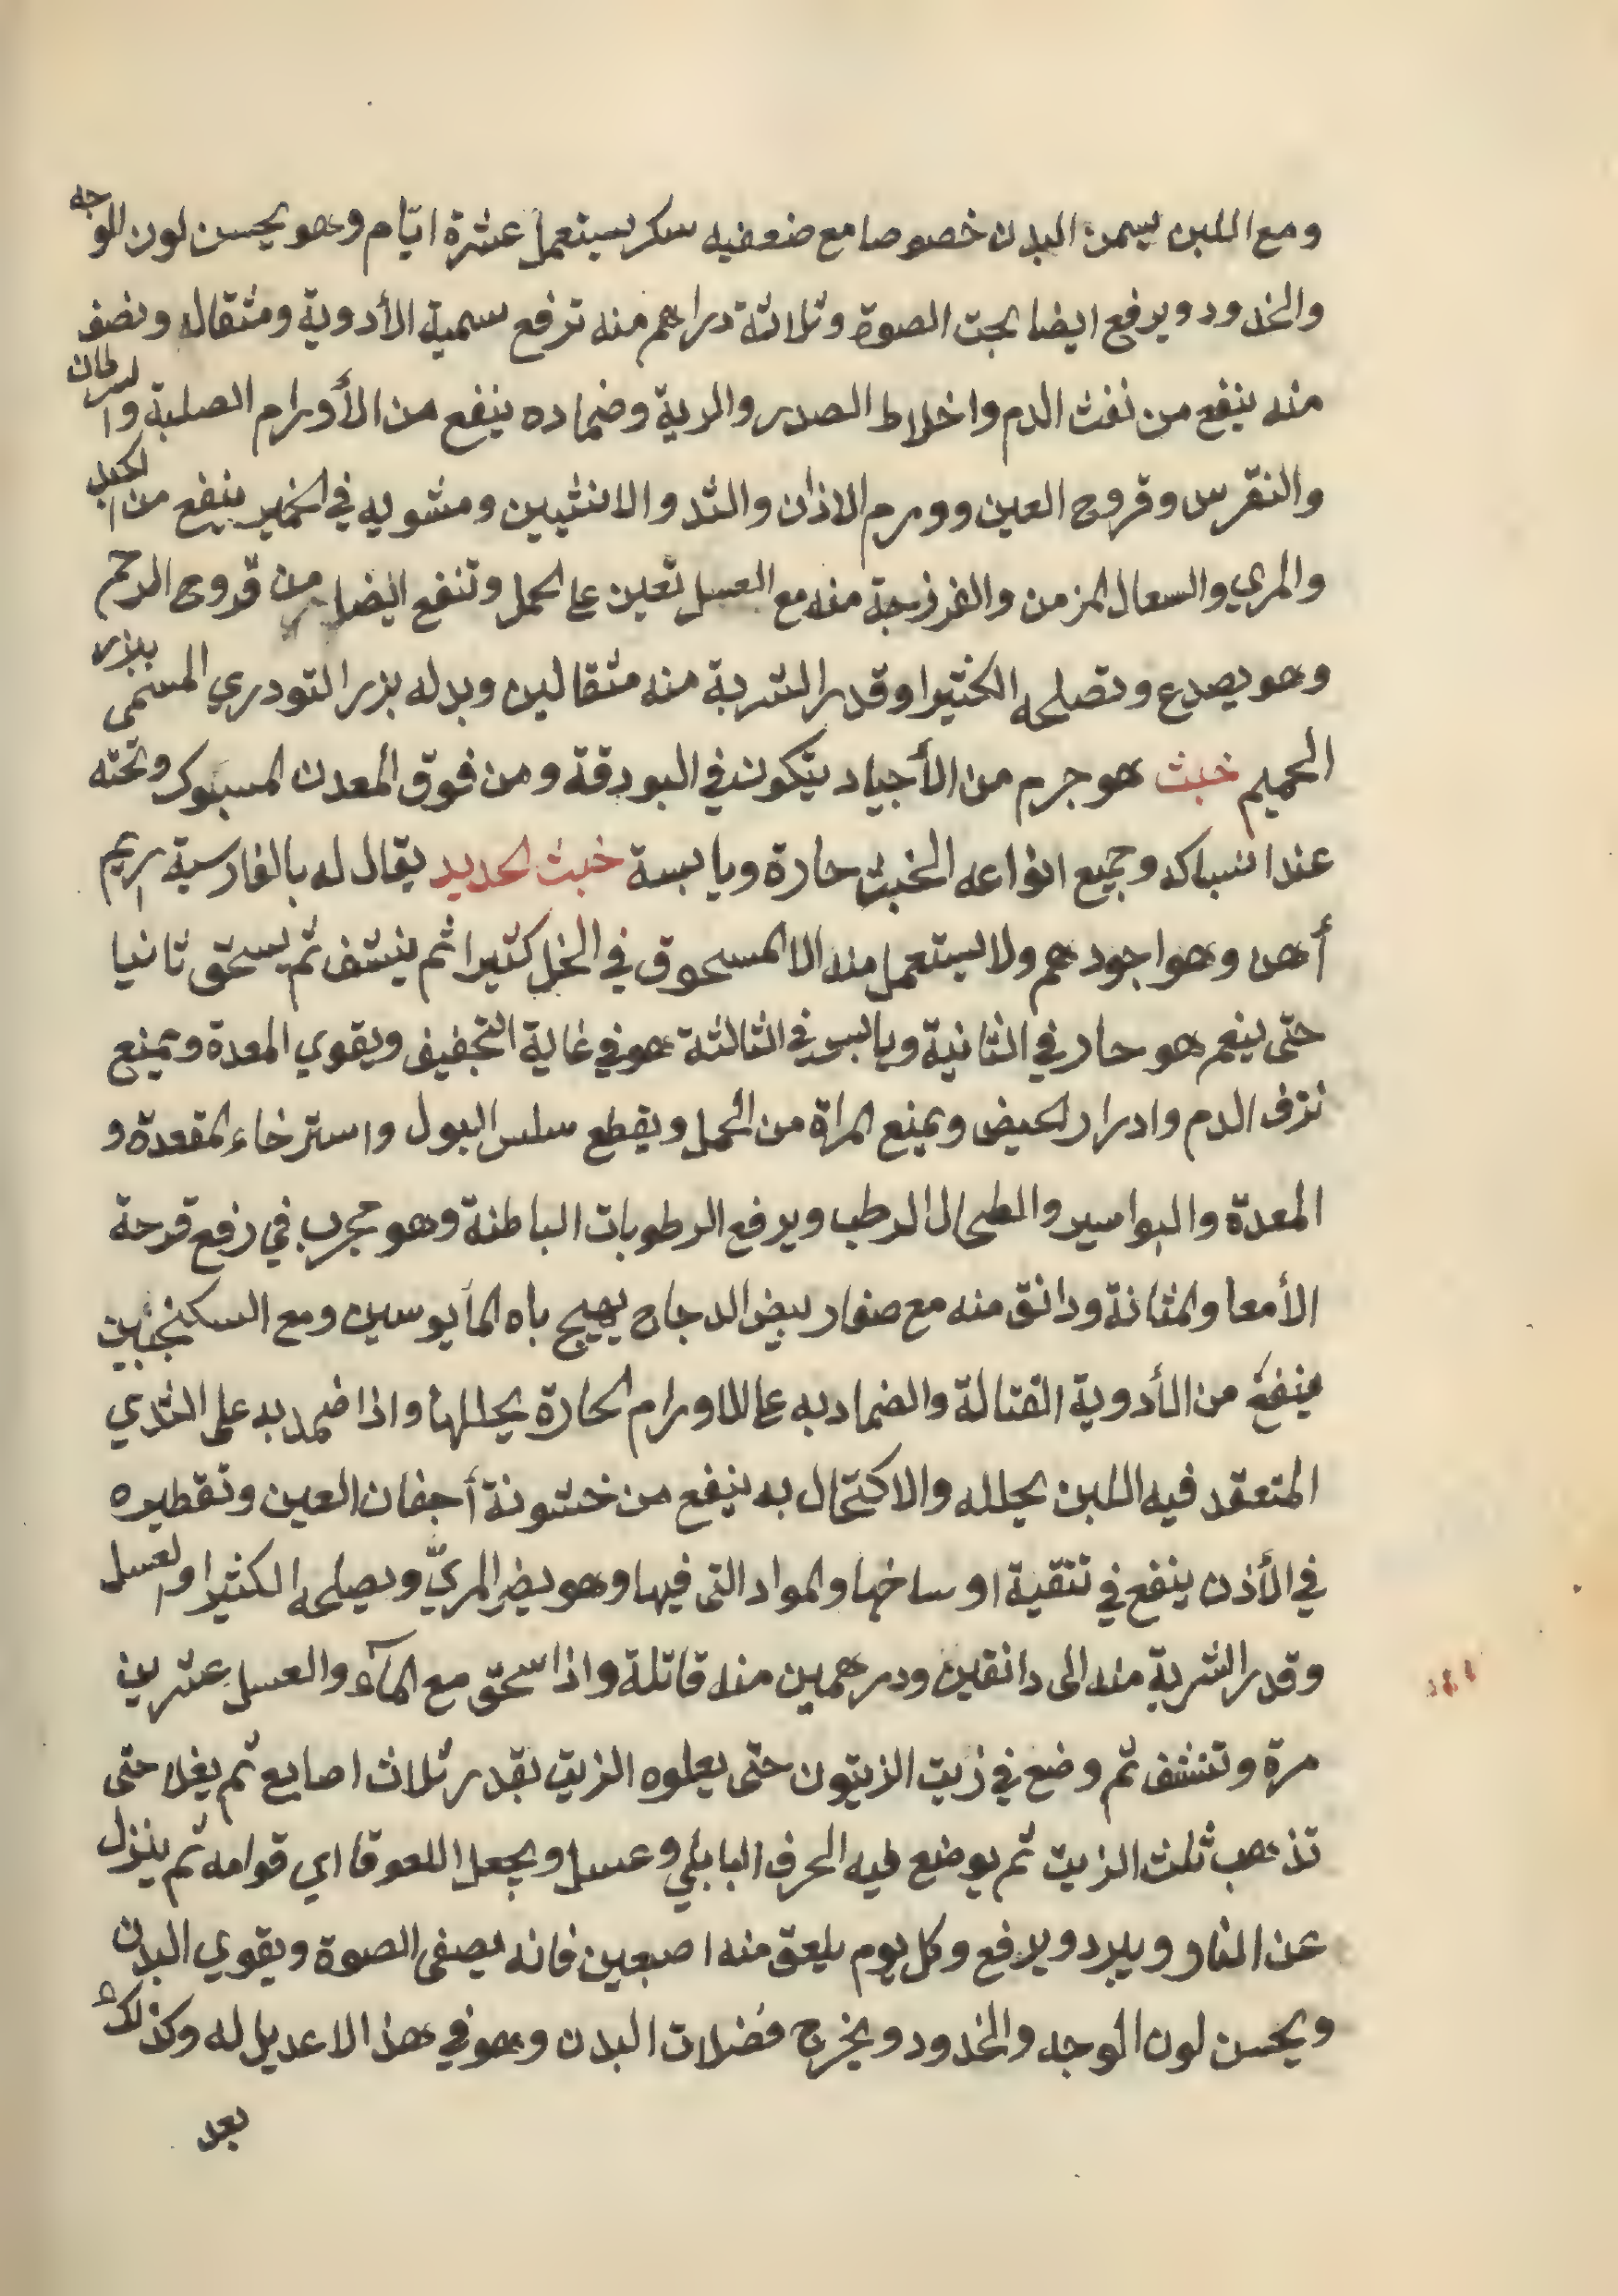 ومع اللبن يسمن البدن خصوصا مع ضعفيه سكر يستعمل عشرة ايّام وهو يحسن لون الوجه
والخدود ويرفع ايضا بحت الصوة وثلاثة دراهم منه ترفع سمية الأدوية ومثقاله ونصف
منه ينفع من نفث الدم واخلاط الصدر والرية وضماده ينفع من الأورام الصلبة والسرطان
والنقرس وقروح العين وورم الاذان والثد والانثيين ومشويه في الخمير ينفع من الكبد
والمري والسعال المزمن والفرزجة منه مع العسل تعين على الحمل وتنفع ايضا من قروح الرحم
وهو يصدع وتصلحه الكثيرا وقدر الشربة منه مثقالين وبدله بزر التودري المسمى ببزر
الحميم خبث هو جرم من الأجياد يتكون في البودقة ومن فوق المعدن المسبوك وتحته
عند انسباكه وجميع انواعه الخبث حارة ويابسة خبث الحديد يقال له بالفارسية اريم
أهن وهو اجودهم ولا يستعمل منه الا المسحوق في الخل كثيرا ثم ينشف ثم يسحق ثانيا
حتى ينعم هو حار في الثانية ويابس في الثالثة هو في غاية التجفيف ويقوي المعدة ويمنع
نزف الدم وادرار الحيض ويمنع المراة من الحمل ويقطع سلس البول واسترخاء المقعدة و
المعدة والبواسير والطحال الرطب ويرفع الرطوبات الباطنة وهو مجرب في رفع قرحة
الأمعا والمثانة ودانق منه مع صفار بيض الدجاج يهيج باه المأيوسين ومع السكنجبين
ينفع من الأدوية القتالة والضماد به على الاورام الحارة يحللها واذا ضمد به على الثدي
المتعقد فيه اللبن يحلله والاكتحال به ينفع من خشونة أجفان العين وتقطيره
في الأذن ينفع في تنقية اوساخها والمواد التى فيها وهو يضر المريّ ويصلحه الكثيرا والعسل
وقدر الشربة منه الى دانقين ودرهمين منه قاتلة واذا سحق مع المآء والعسل عشرين
مرة وتنشف ثم وضع في زيت الزيتون حتى يعلوه الزيت بقدر ثلاث اصابع ثم يغلا حتى
تذهب ثلث الزيت ثم يوضع فيه الحرف البابلي وعسل ويجعل اللعوقا اي قوامه ثم ينزل
عن النار ويبرد ويرفع وكل يوم يلعق منه اصبعين فانه يصفى الصوة ويقوي البدن
ويحسن لون الوجه والخدود ويخرج فضلات البدن وهو في هذا لا عديل له وكذلك
بعد